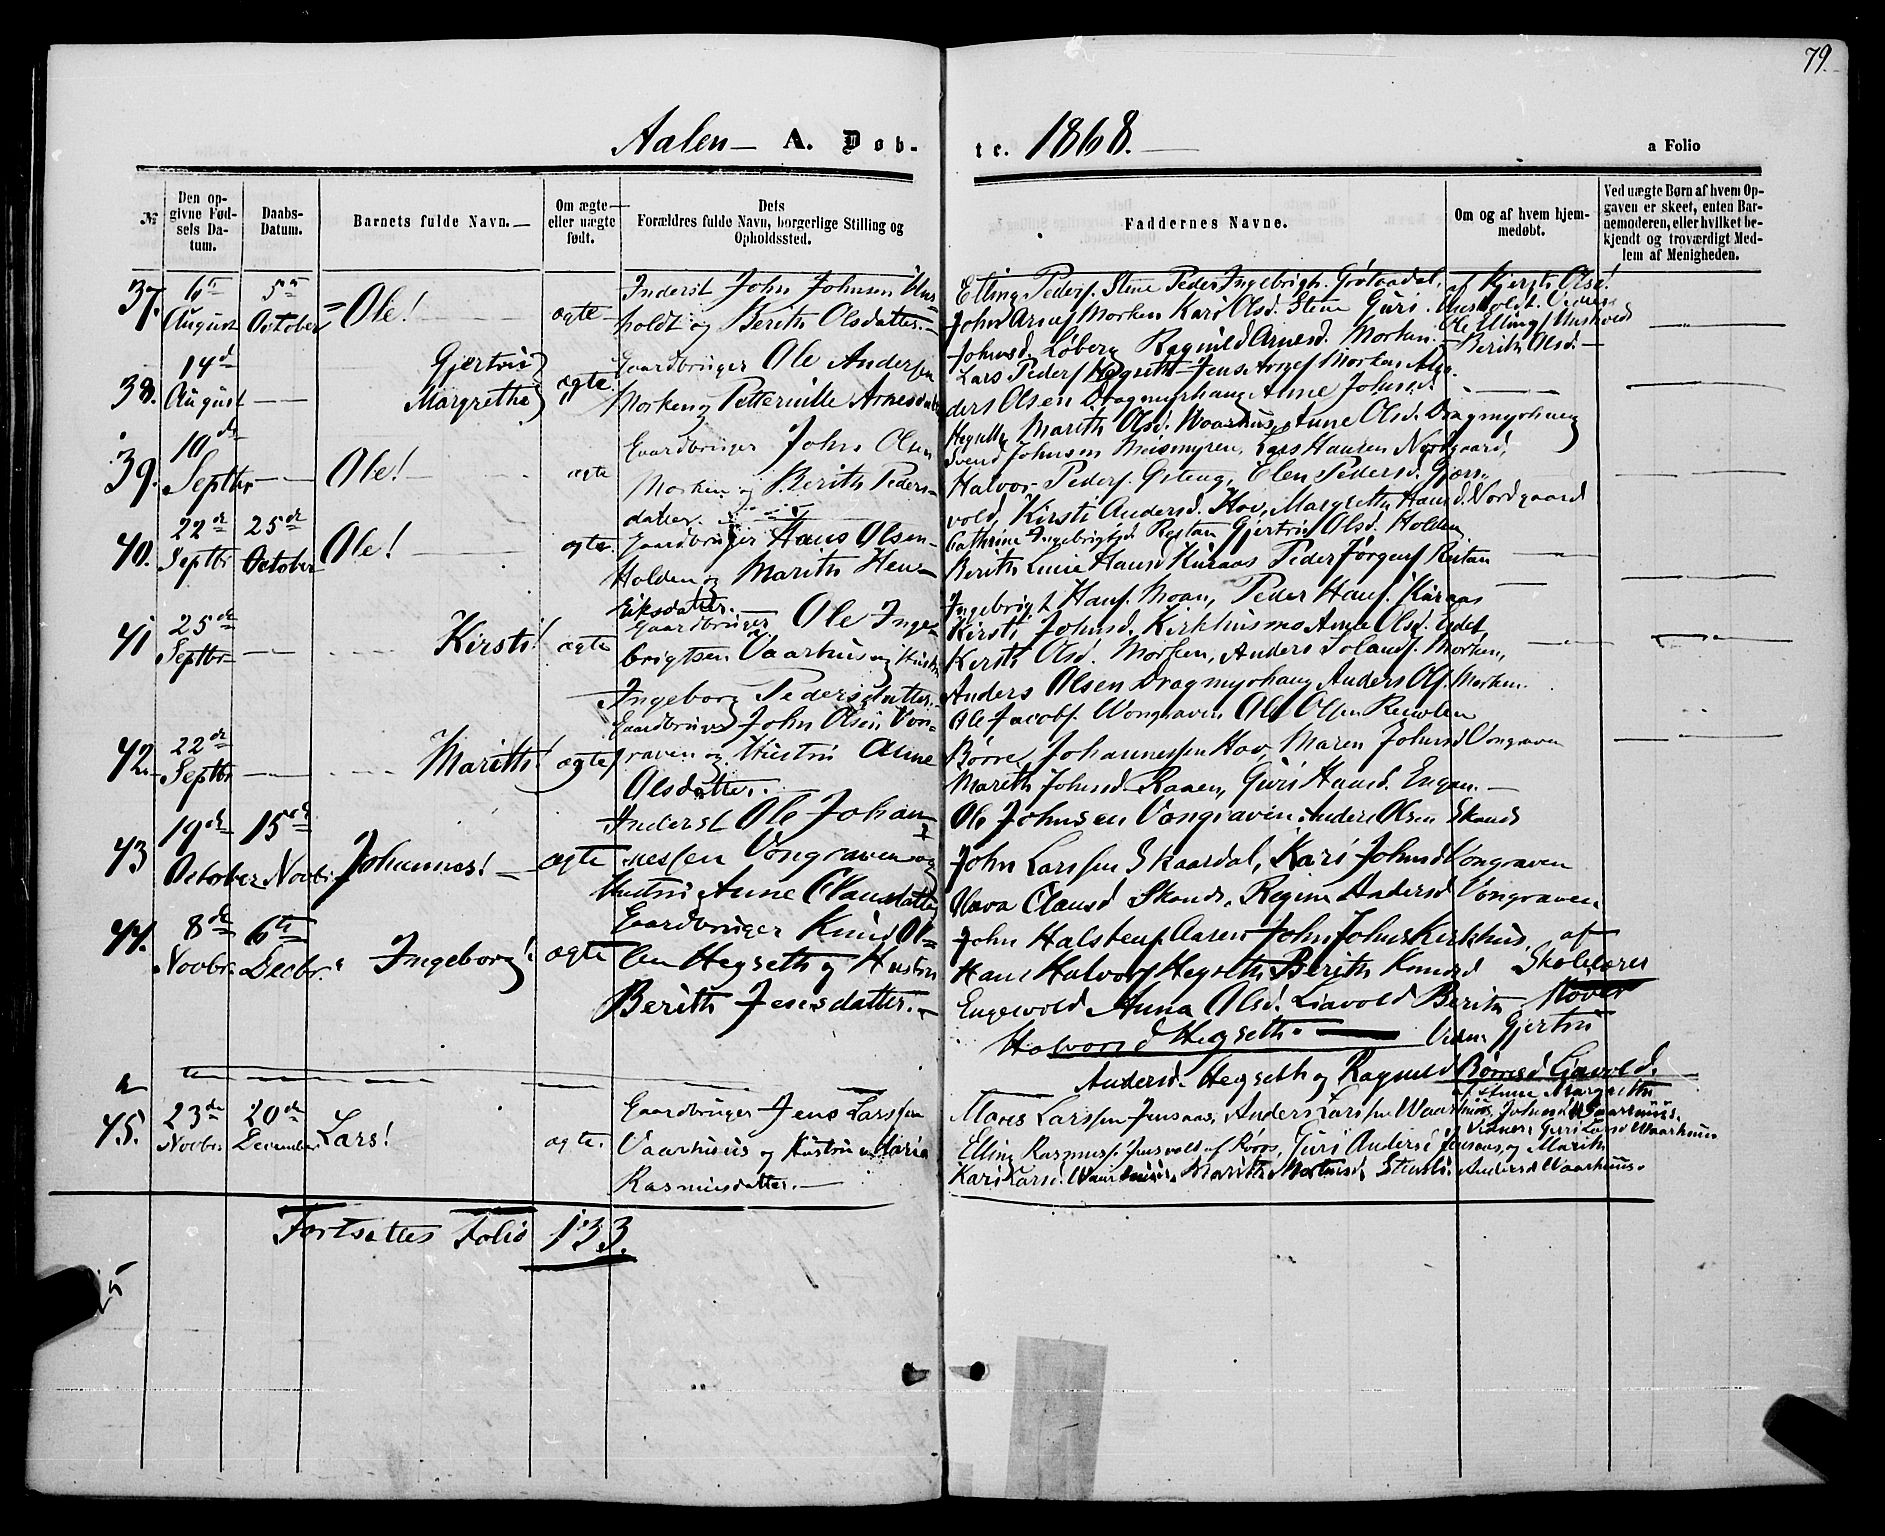 79.
Aalen — A. Døb-
te. 1868.
a Folio
№
Den opgivne Fødsels Datum.
Daabs-Datum.
Barnets fulde Navn.
Om ægte eller uægte født.
Dets Forældres fulde Navn, borgerlige Stilling og Opholdssted.
Faddernes Navne.
Om og af hvem hjemmedøbt.
Ved uægte Børn af hvem Opgaven er skeet, enten Barnemoderen, eller hvilket bekjendt og troværdigt Medlem af Menigheden.
37. 6te August 5te October Ole! ægte
Inderst John Johnsen
holdt og Berith Olsdatter.
Elling Peders. Stene Peder Ingebrigts. Grøtaadal,
John Arnes. Morken Kari Olsd. Stene Guri
Johnsd. Løberg Ragnild Arnesd. Morken.
af Kjersti Olsd.
Ole Ellings.
Berith Olsd.
38. 14de August Gjertrud
Margrethe ægte.
Gaardbruger Ole Andersen
Morken og Petternille Arnesdatter
Lars Peders. Hegseth Jens Arnes. Morken An-
ders Olsen Dragmyrhaug Anne Johnsd.
Hegseth Marith Olsd. Waarhus, Anne Olsd. Dragmyrhaug
39. 10de Septbr Ole! ægte
Gaardbruger John Olsen
Morken og Berith Peders-
datter.
Svend Johnsen Lars Hansen Nordgaard,
Halvor Peders. Elen Pedersd. Gjers-
vold, Kirsti Andersd. Hov, Margrethe Hansd. Nordgaard
40. 22de Septbr 25de October Ole! ægte.
Gaardbruger Hans Olsen
Holden og Marith Hen-
riksdatter.
Cathrine Ingebrigtsd. Reitan Gjertrud Olsd. Holden
Berith Hansd. Kuraas Peder Jørgens. Reitan
Ingebrigt Hans. Moan, Peder Hans. Kuraas
41 25de Septbr Kirsti! ægte
Gaardbruger Ole Inge-
brigtsen Vaarhus og Hustru
Ingeborg Pedersdatter.
Kirsti Johnsd. Kirkhusmo Anne Olsd.
Kersti Olsd. Morken, Anders Morken,
Anders Olsen Dragmyrhaug Anders Ols. Morken.
42 22de Septbr Marith! ægte
Gaardbruger John Olsen Von-
graven og Hustru Anne
Olsdatter.
Ole Jacobs. Wongraven Ole Olsen Renolen
Børre Johannessen Hov, Maren Johnsd Vongraven
Marith Johnsd. Raaen, Guri Hansd. Engan.
43 19de October 15de Novbr. Johannes! ægte
Inderst Ole Johan-
nessen Vongraven og
Hustru Anne Clausdatter
Ole Johnsen Vongraven, Anders Olsen Skands
John Larssen Skaardal, Kari Johnsd Vongraven
Olava Clausd Skands, Regine Andersd Vongraven
44. 8de Novbr. 6te Decbr. Ingeborg! ægte
Gaardbruger Knud Ol-
sen Hegseth og Hustru
Berith Jensdatter.
John Halstens. Aaren John Johns Kirkhus
Hans Halvors Hegseth Berith Knudsd
Engevold Anna Olsd. Liavold Berith
Halvorsd Hegseth.
af
Skolelærer
Møver
Vidner Gjertru
Andersd. Hegseth og Ragnild Børresd Gavold.
45. 23de Novbr. 20de December Lars! ægte.
Gaardbruger Jens Larssen
Vaarhuus og Hustru Maria
Rasmusdatter.
Mons Larssen Jensaas, Anders Larssen Waarhuus, John Waarhuus.
Elling Rasmus. Jensvold af Røros, Guri Andersd Jensaas, og Marith
Kari Larsd. Waarhuus. Marith Mortensd. Andersd Waarhuus.
af Anne Margrethe
Vidner: Guri Larsd Waarhuus
Fortsættes Folio 133.